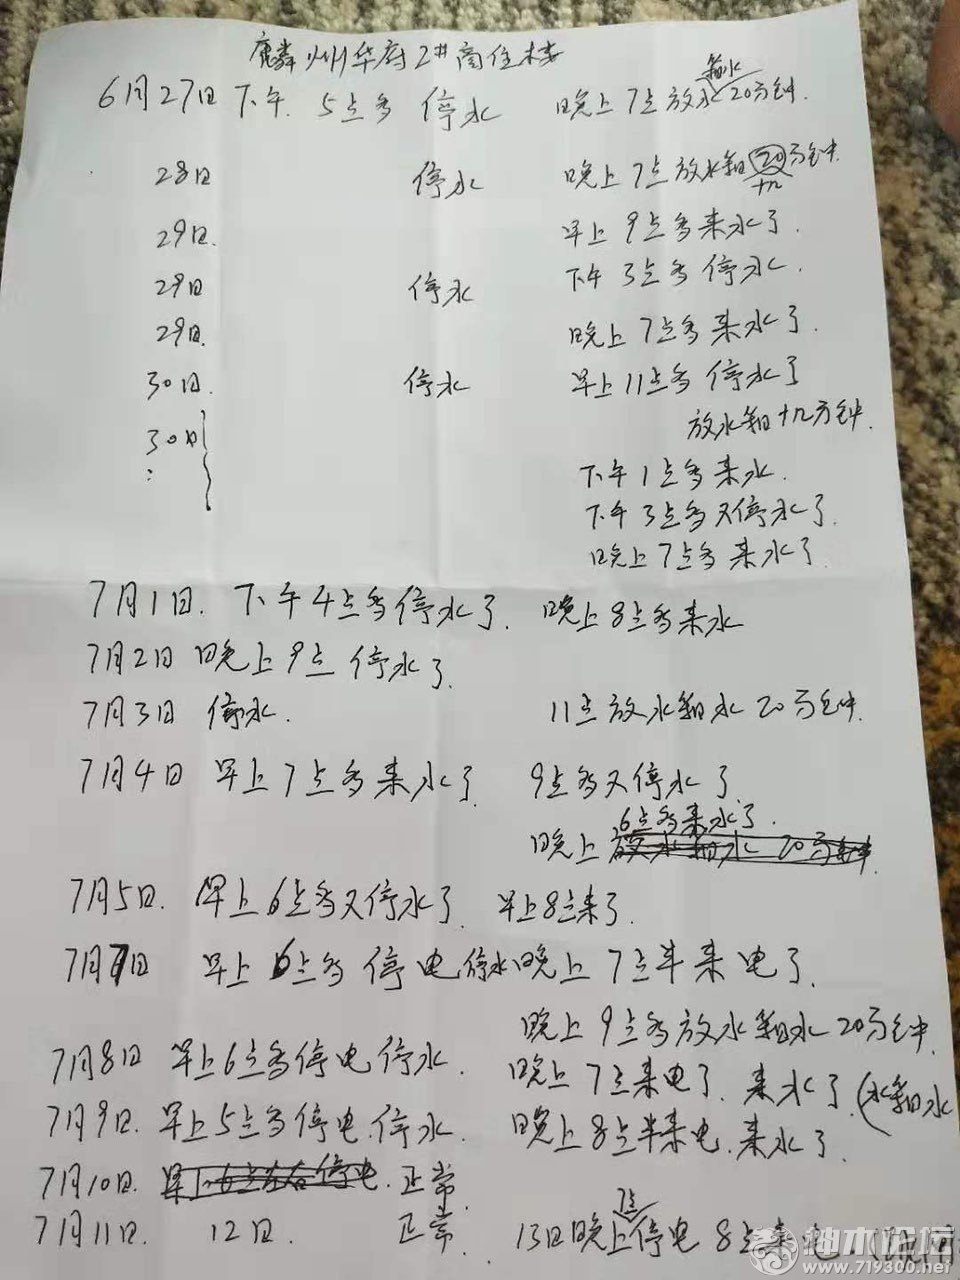 麟州华府2#商住楼
6月27日下午5点多 停水 晚上7点放水箱水20分钟.
28日 停水 晚上7点放水箱十几分钟.
29日. 早上9点多来水了.
29日 停水 下午3点多停水.
29日. 晚上7点多来水了.
30日. 停水 早上11点多停水了
30日 放水箱十几分钟.
下午1点多来水.
下午3点多又停水了.
晚上7点多来水了.
7月1日. 下午4点多停水了. 晚上8点多来水
7月2日晚上9点停水了.
7月3日 停水. 11点放水箱水20分钟.
7月4日 早上7点多来水了. 9点多又停水了.
晚上6点多来水了.
7月5日. 早上6点多又停水了. 早上8点来了.
7月7日 早上6点多停电停水晚上7点半来电了.
晚上9点多放水箱水20分钟.
7月8日 早上6点多停电停水. 晚上7点来电了.来水了.(水箱水
7月9日. 早上5点多停电.停水. 晚上8点半来电.来水了.
7月10日. 正常.
7月11日. 12日. 正常. 13日晚上7点停电 8点来电
神木论坛
www.719300.net